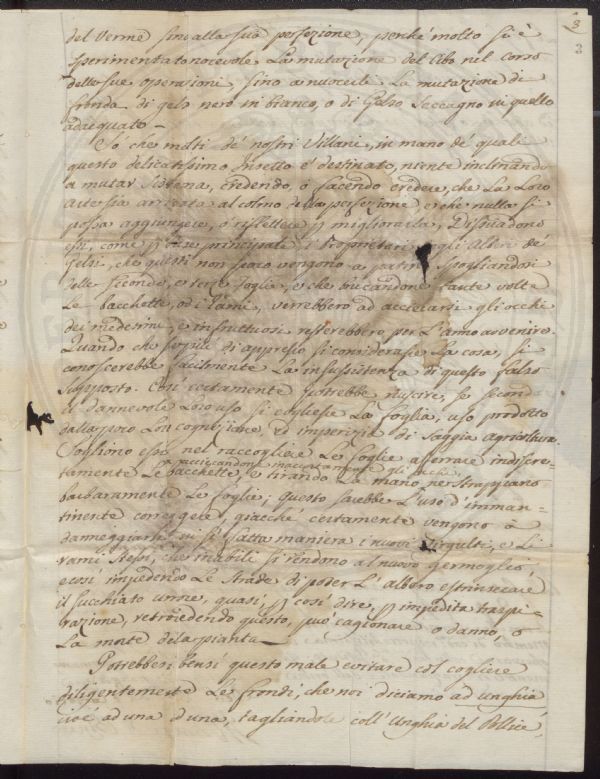 3
3
del Verme sino alla sua perfezione, perché molto si è
sperimentata nocevole La mutazione del Cibo nel corso
delle sue operazioni, sino a nuocerli La mutazione di
fronda di gelso nero in bianco, o di Gelso seccagno in quello
adacquato –
Sò che molti de' nostri Villani, in mano de' quali
questo delicatissimo Insetto è destinato, niente inclinando
a mutar Sistema, credendo, o facendo credere, che La Loro
arte sia arrivata al colmo della perfezione e che nulla si
possa aggiungere, o riflettere p migliorarla, Dissuadono
essi, come p principale, i Proprietari degli Alberi de'
Gelsi, che questi non poco vengono a patire spogliandosi
delle seconde, e terze foglie, e che buccandone tante volte
Le bacchette, od i rami, verrebbero ad accecarsi gli occhi
dei medesimi, e infruttuosi resterebbero per L'anno avvenire.
Quando che di appresso si considerasse La cosa, si
conoscerebbe facilmente La insussistenza di questo falso
supposto. Così certamente potrebbe riuscire, se secondo
il dannevole Loro uso si cogliesse La foglia, uso prodotto
dalla poco Loro cognizione, ed imperizia di saggia agricoltura.
Sogliono essi nel raccogliere Le foglie afferrare indiscre-
tamente Le bacchette, e tirando La mano, ne strappano
barbaramente Le foglie; questo sarebbe L'uso d'imman-
tinente correggere, giacché certamente vengono a
danneggiarsi in si fatta maniera i nuovi Virgulti, e Li
rami stessi, che inabili si rendono al nuovo germoglio
e così impedendo Le strade di poter L'albero estrinsecare
il succhiato umore, quasi, p così dire, p impedita traspi-
razione, retrocedendo questo, può cagionare o danno, o
La morte dela pianta –
Potrebbesi bensì questo male evitare col cogliere
diligentemente Le frondi, che noi diciamo ad unghia
cioè ad una ad una, tagliandole coll'Unghia del Pollice,